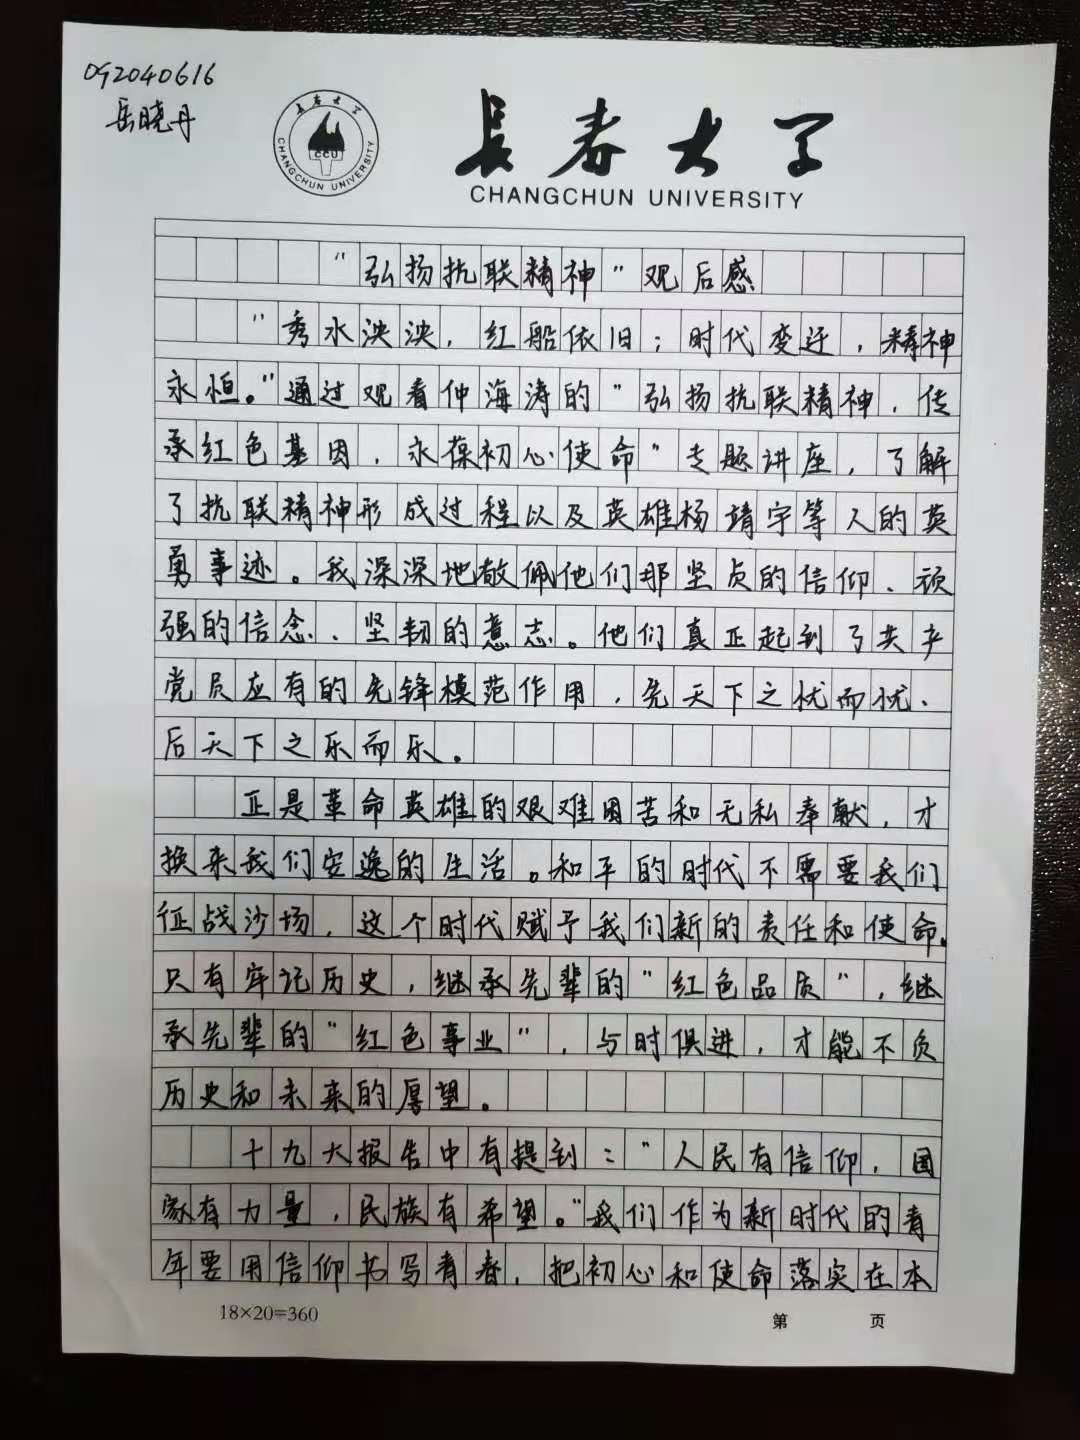 092040616
岳晓丹
长春大学
CHANGCHUN UNIVERSITY
CCU
长春大学
CHANGCHUN UNIVERSITY
"弘扬抗联精神"观后感
"秀水泱泱，红船依旧；时代变迁，精神
永恒。"通过观看仲海涛的"弘扬抗联精神，传
承红色基因，永葆初心使命"专题讲座，了解
了抗联精神形成过程以及英雄杨靖宇等人的英
勇事迹。我深深地敬佩他们那坚贞的信仰、顽
强的信念、坚韧的意志。他们真正起到了共产
党员应有的先锋模范作用，先天下之忧而忧、
后天下之乐而乐。
正是革命英雄的艰难困苦和无私奉献，才
换来我们安逸的生活。和平的时代不需要我们
征战沙场，这个时代赋予我们新的责任和使命。
只有牢记历史，继承先辈的"红色品质"，继
承先辈的"红色事业"，与时俱进，才能不负
历史和未来的厚望。
十九大报告中有提到："人民有信仰，国
家有力量，民族有希望。"我们作为新时代的青
年要用信仰书写青春，把初心和使命落实在本
18×20=360
第 页